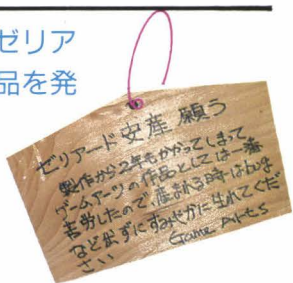 ゼリア
品を発
ゼリアード安産願う
製作から2年もかかってしまって
ゲームアーツの作品としては一番
苦労したので、産まれる時はbug
など出ずにすみやかに生れてくだ
さい
Game Arts